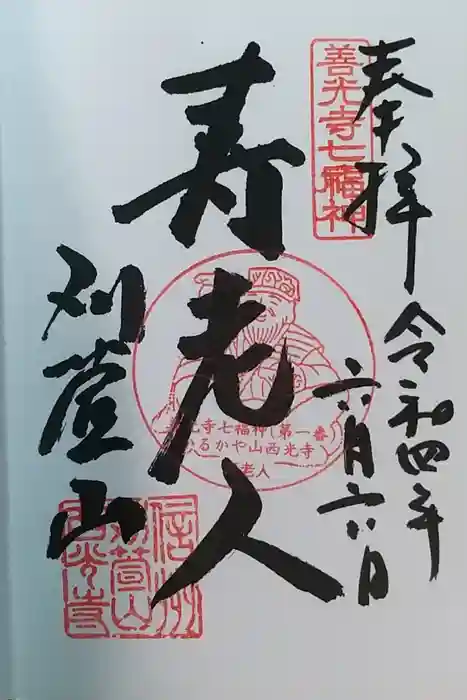 奉拝
令和四年
六月六日
善光寺七福神
寿老人
善光寺七福神(第一番)
かるかや山西光寺
寿老人
刈萱山
信州
刈萱山
西光寺